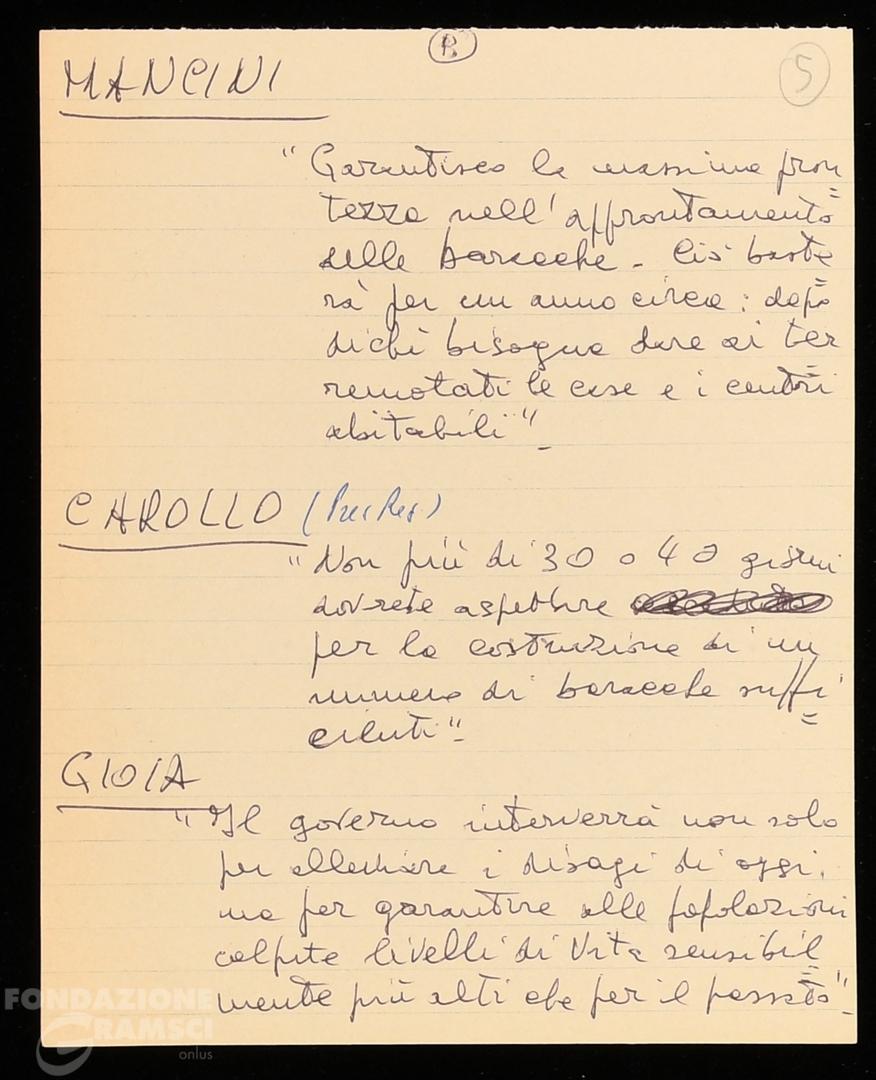 R
5
MANCINI
"Garantisco la massima pron
tezza nell'affrontamento
delle baracche - Ciò baste
rà per un anno circa: dopo
dichè bisogna dare ai ter
remotati le case e i centri
abitabili"-
CAROLLO (Pres Reg)
"Non più di 30 o 40 giorni
dovrete aspettare
per la costruzione di un
numero di baracche suffi
cienti"-
GIOIA
"Il governo interverrà non solo
per alleviare i disagi di oggi,
ma per garantire alle popolazioni
colpite livelli di vita sensibil
mente più alti che per il passato"-
FONDAZIONE
GRAMSCI
onlus